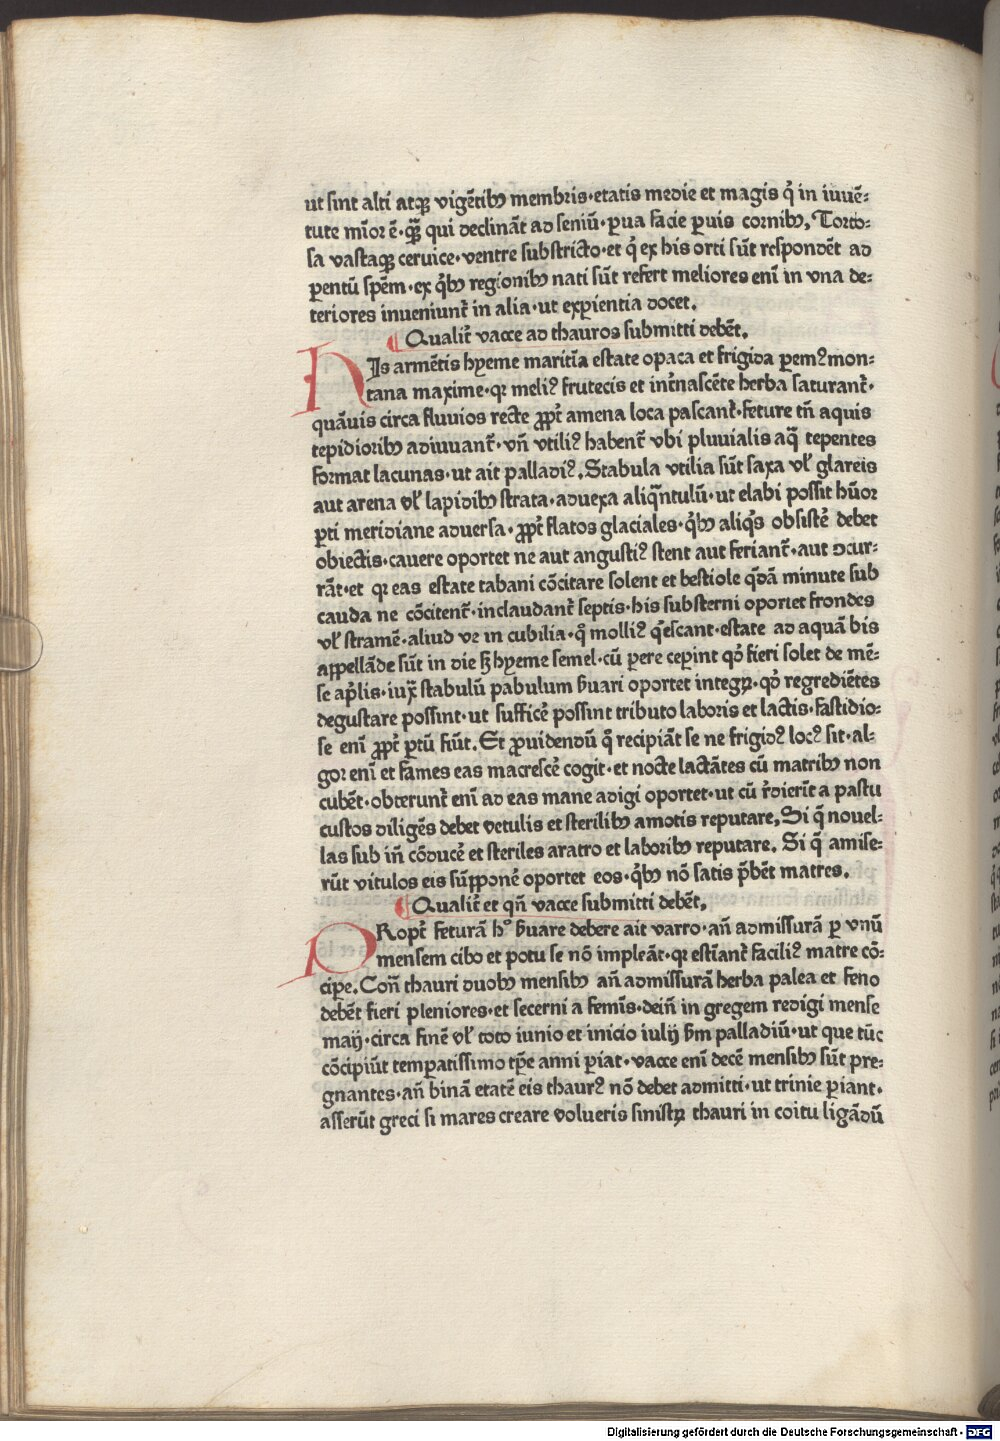 ut sint alti atqꝫ vigẽtibꝫ membris·etatis medie et magis ꝙ in iuuẽ⸗
tute mĩor ẽ·qꝫ̃ qui declinãt ad seniũ·ꝑua facie ꝑuis cornibꝫ, Torto⸗
sa vastaqꝫ ceruice·ventre substricto·et ꝙ ex his orti sũt respondẽt ad
ꝑentũ spẽm·ex qͥbꝫ regionibꝫ nati sũt refert meliores enĩ in vna de⸗
teriores inueniunt̃ in alia·ut exꝑientia docet.
¶ Qualit̃ vacce ad thauros submitti debẽt.
HIs armẽtis hyeme maritĩa estate opaca et frigida ꝑemꝰmon⸗
tana maxime·qꝛ meliꝰ frutecis et int̃nascẽte herba saturant̃·
quãuis circa fluuios recte ꝓpt̃ amena loca pascant̃·feture tñ aquis
tepidioribꝫ adiuuant̃·vñ vtiliꝰ habent̃ vbi pluuialis aq̃ tepentes
format lacunas·ut ait palladiꝰ. Stabula vtilia sũt saxa vꝉ glareis
aut arena vꝉ lapidibꝫ strata·aduexa aliq̃ntulũ·ut elabi possit hũor
ꝑti meridiane aduersa·ꝓpt̃ flatos glaciales·qͥbꝫ aliqͥs obsistẽ debet
obiectis·cauere oportet ne aut angustiꝰ stent aut feriant̃·aut ↄcur⸗
rãt·et qꝛ eas estate tabani cõcitare solent et bestiole q̃dã minute sub
cauda ne cõcitent̃·inclaudant̃ septis·his substerni oportet frondes
vꝉ stramẽ·aliud ve in cubilia·ꝙ molliꝰ q̃escant·estate ad aquã bis
appellãde sũt in die sꝫ hyeme semel·cũ ꝑere ceperint qͦd fieri solet de mẽ⸗
se apͥlis·iuxͣ stabulũ pabulum ẜuari oportet integꝝ·qͦd regrediẽtes
degustare possint·ut sufficẽ possint tributo laboris et lactis·fastidio⸗
se enĩ ꝓpt̃ ꝑtũ fiũt. Et ꝓuidendũ ꝙ recipiãt se ne frigidꝰ locꝰ sit·al⸗
gor enĩ et fames eas macrescẽ cogit·et nocte lactãtes cũ matribꝫ non
cubẽt·obterunt̃ enĩ ad eas mane adigi oportet·ut cũ r̃dierĩt a pastu
custos diligẽs debet vetulis et sterilibꝫ amotis reputare, Si ꝙ nouel⸗
las sub iñ cõducẽ et steriles aratro et laboribꝫ reputare. Si ꝙ amise⸗
rũt vitulos eis sũpponẽ oportet eos·qͥbꝫ nõ satis p̃bẽt matres.
¶ Qualit̃ et qñ vacce submitti debẽt,
PRopt̃ feturã hͦ ẜuare debere ait varro·añ admissurã ꝑ vnũ
mensem cibo et potu se nõ impleãt·qꝛ estĩant̃ faciliꝰ matre cõ⸗
ciꝑe. Con̄ thauri duobꝫ mensibꝫ añ admissurã herba palea et feno
debẽt fieri pleniores·et secerni a femĩs·deiñ in gregem redigi mense
maij·circa finẽ vꝉ toto iunio et inicio iulij ẜm palladiũ·ut que tũc
cõcipiũt temꝑatissimo tꝑe anni ꝑiat·vacce enĩ decẽ mensibꝫ sũt pre⸗
gnantes·añ binã etatẽ eis thaurꝰ nõ debet admitti·ut trinie ꝑiant·
asserũt greci si mares creare volueris sinistꝝ thauri in coitu ligãdũ
Digitalisierung gefördert durch die Deutsche Forschungsgemeinschaft - DFG